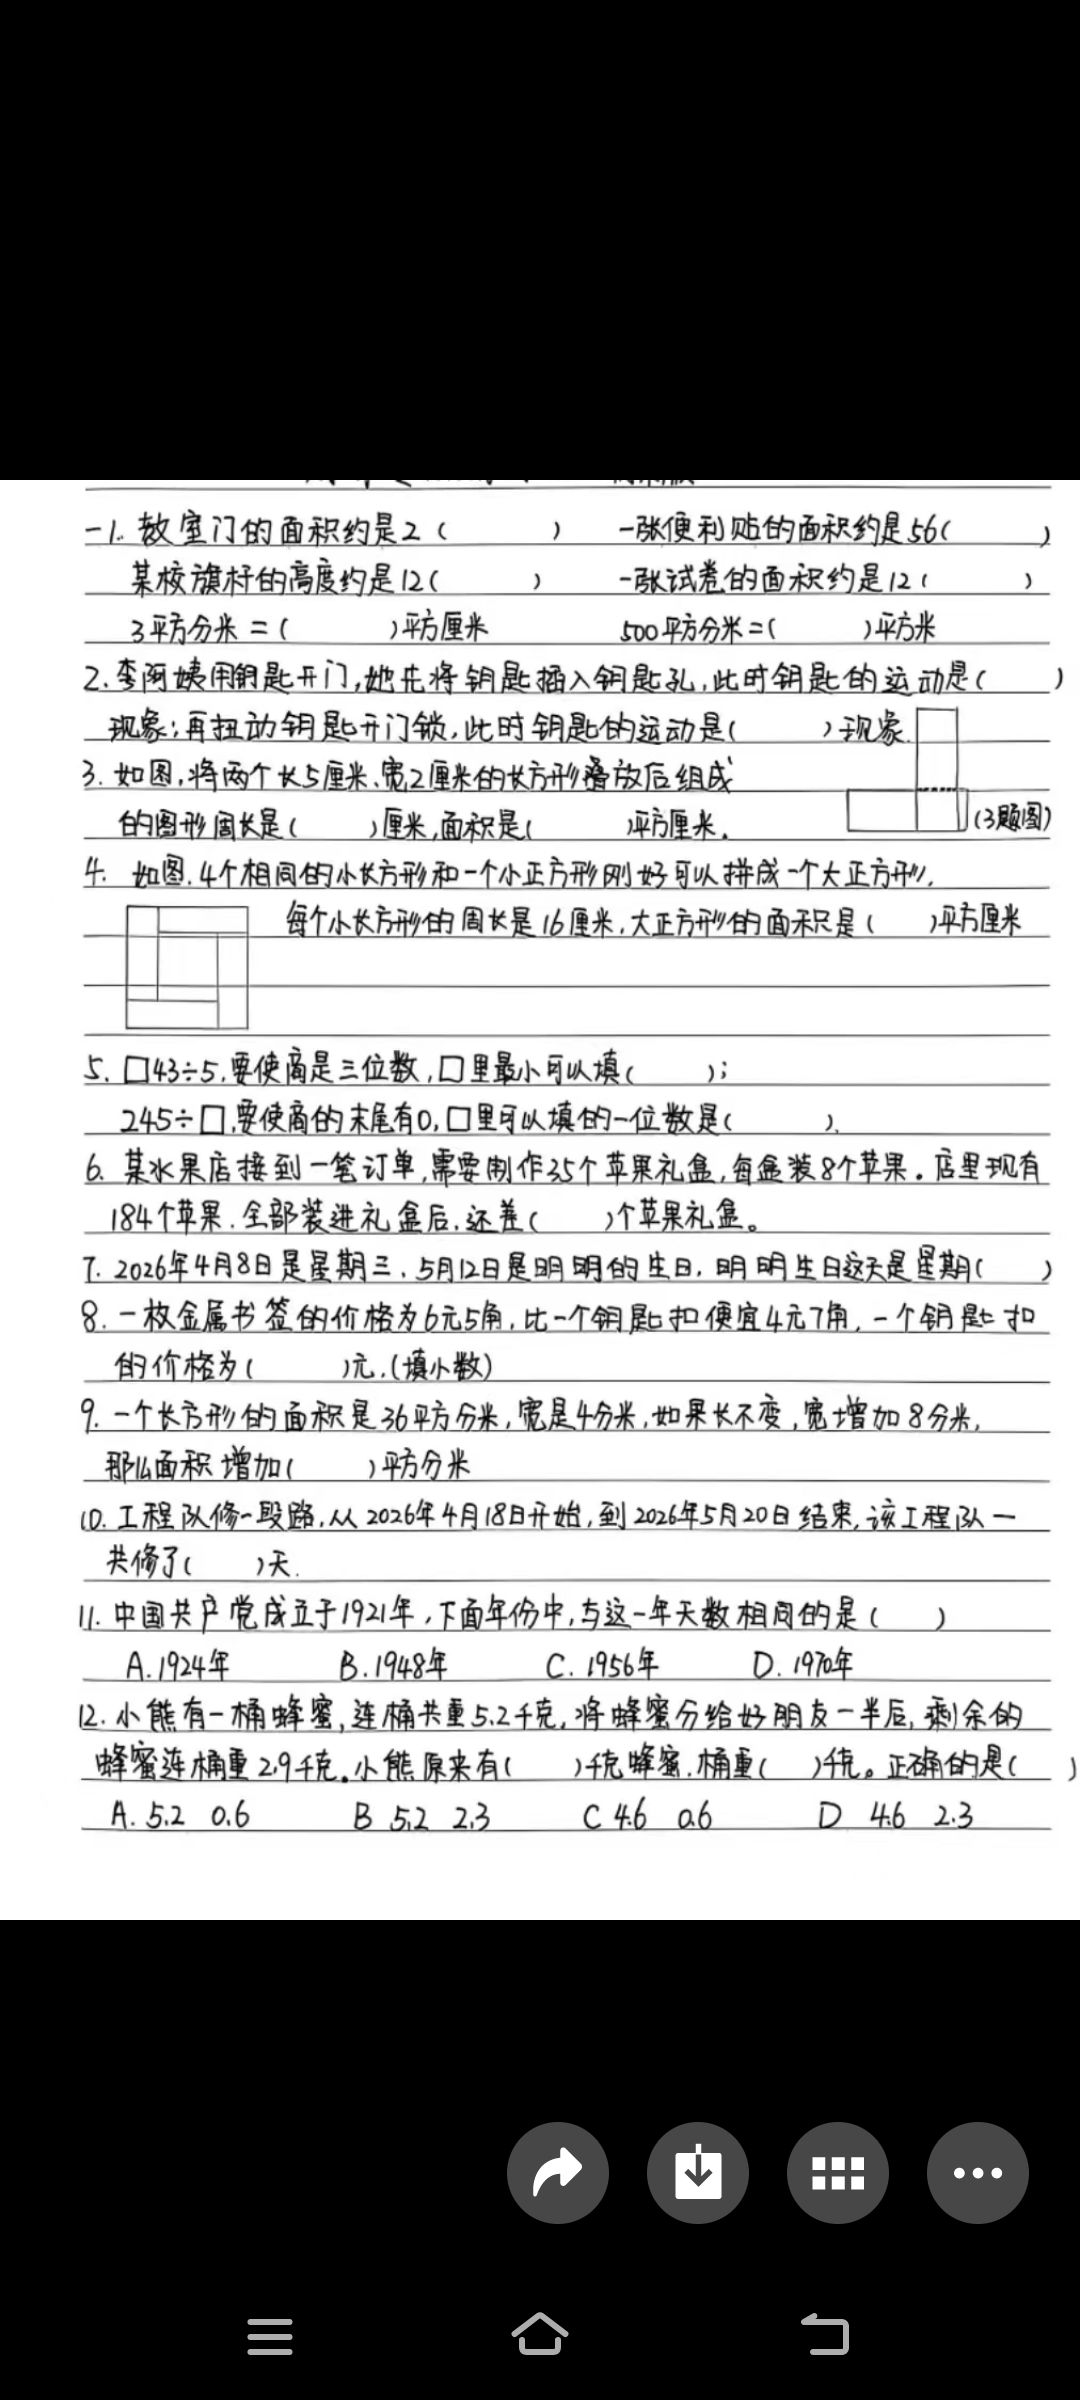 一1. 教室门的面积约是2（ ） 一张便利贴的面积约是56（ ）
某校旗杆的高度约是12（ ） 一张试卷的面积约是12（ ）
3平方分米＝（ ）平方厘米 500平方分米＝（ ）平方米
2. 李阿姨用钥匙开门，她先将钥匙插入钥匙孔，此时钥匙的运动是（ ）
现象；再扭动钥匙开门锁，此时钥匙的运动是（ ）现象．
3. 如图，将两个长5厘米、宽2厘米的长方形叠放后组成
的图形周长是（ ）厘米，面积是（ ）平方厘米． （3题图）
4. 如图．4个相同的小长方形和一个小正方形刚好可以拼成一个大正方形．
每个小长方形的周长是16厘米，大正方形的面积是（ ）平方厘米
5. □43÷5，要使商是三位数，□里最小可以填（ ）；
245÷□，要使商的末尾有0，□里可以填的一位数是（ ）．
6. 某水果店接到一笔订单，需要制作35个苹果礼盒，每盒装8个苹果。店里现有
184个苹果．全部装进礼盒后，还差（ ）个苹果礼盒。
7. 2026年4月8日是星期三．5月12日是明明的生日，明明生日这天是星期（ ）
8. 一枚金属书签的价格为6元5角，比一个钥匙扣便宜4元7角，一个钥匙扣
的价格为（ ）元．（填小数）
9. 一个长方形的面积是36平方分米，宽是4分米，如果长不变，宽增加8分米，
那么面积增加（ ）平方分米
10. 工程队修一段路，从2026年4月18日开始，到2026年5月20日结束，该工程队一
共修了（ ）天．
11. 中国共产党成立于1921年，下面年份中，与这一年天数相同的是（ ）
A. 1924年 B. 1948年 C. 1956年 D. 1970年
12. 小熊有一桶蜂蜜，连桶共重5.2千克，将蜂蜜分给好朋友一半后，剩余的
蜂蜜连桶重2.9千克。小熊原来有（ ）千克蜂蜜．桶重（ ）千克。正确的是（ ）
A. 5.2 0.6 B 5.2 2.3 C 4.6 0.6 D 4.6 2.3